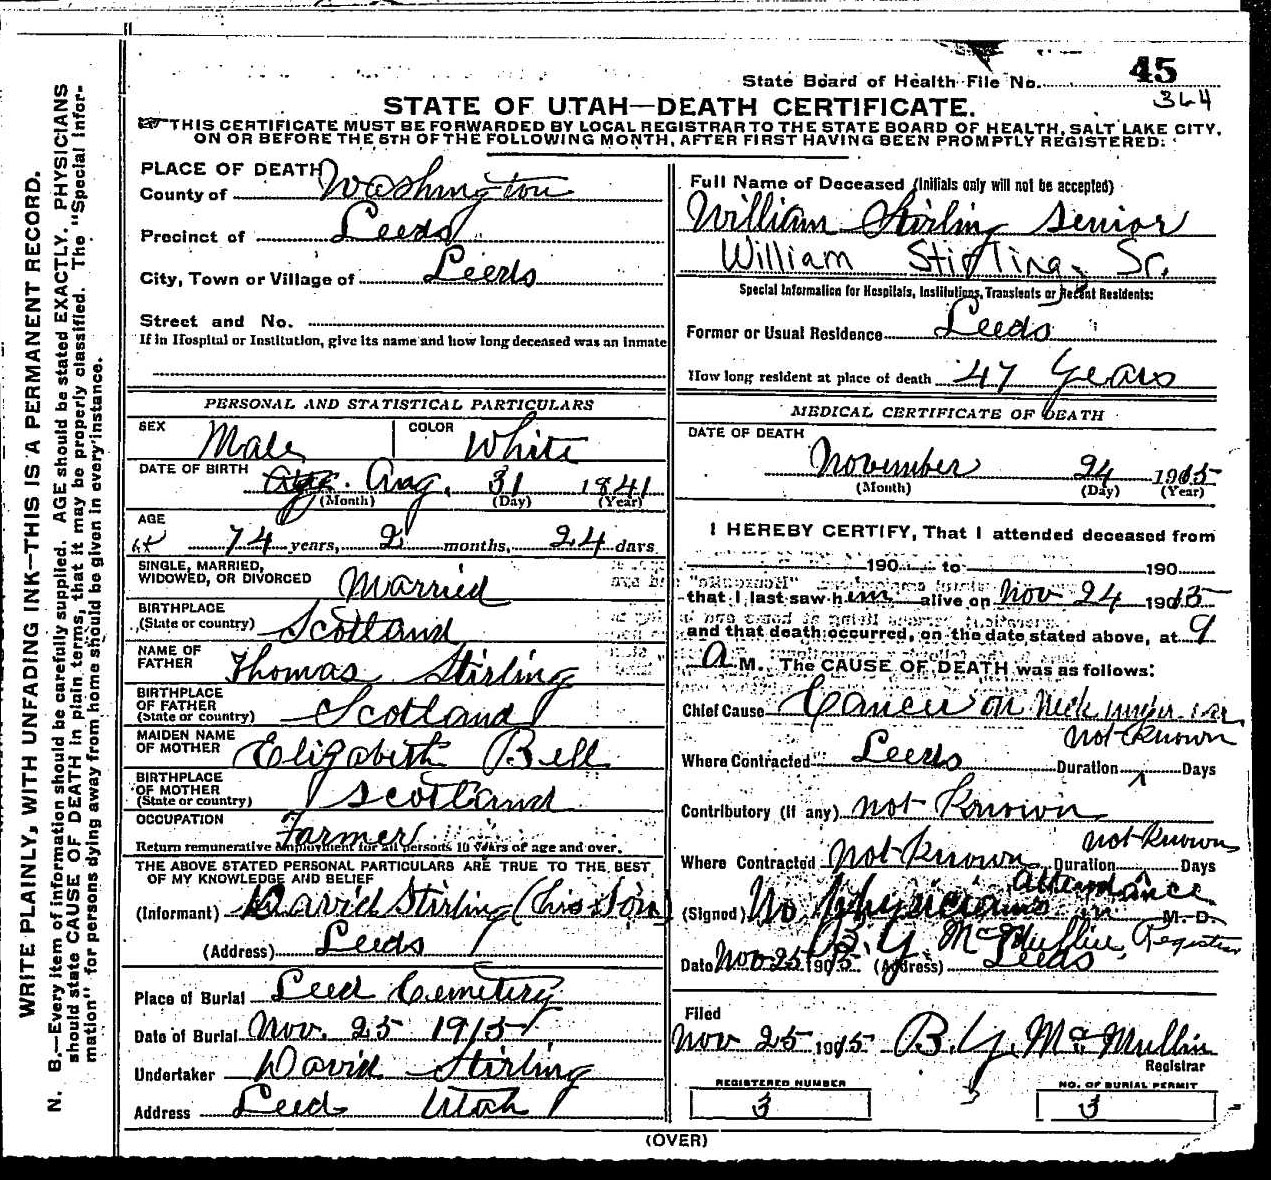 WRITE PLAINLY, WITH UNFADING INK—THIS IS A PERMANENT RECORD.
N. B.—Every item of information should be carefully supplied. AGE should be stated EXACTLY. PHYSICIANS
should state CAUSE OF DEATH in plain terms, that it may be properly classified. The "Special Infor-
mation" for persons dying away from home should be given in every instance.
State Board of Health File No. 45
364
STATE OF UTAH—DEATH CERTIFICATE.
THIS CERTIFICATE MUST BE FORWARDED BY LOCAL REGISTRAR TO THE STATE BOARD OF HEALTH, SALT LAKE CITY,
ON OR BEFORE THE 5TH OF THE FOLLOWING MONTH, AFTER FIRST HAVING BEEN PROMPTLY REGISTERED.
PLACE OF DEATH
County of Washington
Precinct of Leeds
City, Town or Village of Leeds
Street and No.
If in Hospital or Institution, give its name and how long deceased was an inmate
Full Name of Deceased (Initials only will not be accepted)
William Stirling Senior
William Stirling, Sr.
Special Information for Hospitals, Institutions, Transients or Recent Residents:
Former or Usual Residence Leeds
How long resident at place of death 47 Years
PERSONAL AND STATISTICAL PARTICULARS
SEX Male COLOR White
DATE OF BIRTH Aug. 31 1841
(Month) (Day) (Year)
AGE
74 years, 2 months, 24 days.
SINGLE, MARRIED,
WIDOWED, OR DIVORCED Married
BIRTHPLACE
(State or country) Scotland
NAME OF
FATHER Thomas Stirling
BIRTHPLACE
OF FATHER
(State or country) Scotland
MAIDEN NAME
OF MOTHER Elizabeth Bell
BIRTHPLACE
OF MOTHER
(State or country) Scotland
OCCUPATION Farmer
Return remunerative employment for all persons 10 years of age and over.
THE ABOVE STATED PERSONAL PARTICULARS ARE TRUE TO THE BEST
OF MY KNOWLEDGE AND BELIEF
(Informant) David Stirling (his Son)
(Address) Leeds
Place of Burial Leed Cemetery
Date of Burial Nov. 25 1915
Undertaker David Stirling
Address Leeds Utah
MEDICAL CERTIFICATE OF DEATH
DATE OF DEATH
November 24 1915
(Month) (Day) (Year)
I HEREBY CERTIFY, That I attended deceased from
190 to 190
that I last saw him alive on Nov 24 1915
and that death occurred, on the date stated above, at 9
A M. The CAUSE OF DEATH was as follows:
Chief Cause Cancer on Neck under ear
not known
Where Contracted Leeds Duration Days
Contributory (if any) not Known
not known
Where Contracted not Known Duration Days
attendance
(Signed) No Physicians in M. D.
B. Y. McMullin, Registrar
Date Nov 25 1915 (Address) Leeds
Filed
Nov 25 1915 B. Y. McMullin
Registrar
REGISTERED NUMBER
3
NO. OF BURIAL PERMIT
3
(OVER)